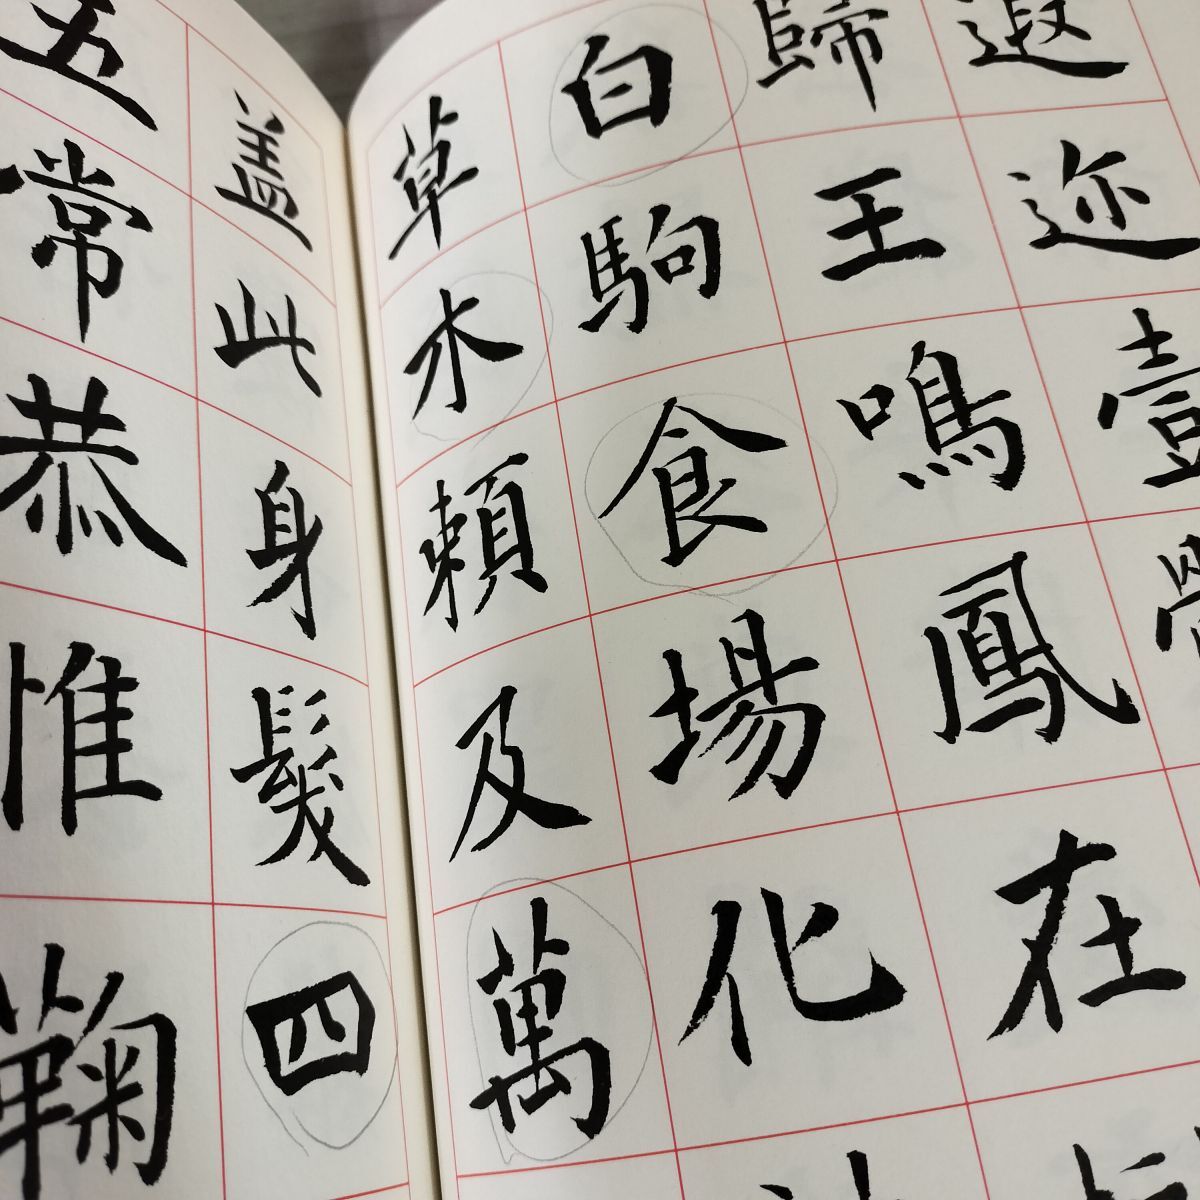 遐迩壹
歸王鳴鳳在
白駒食場化
草木賴及萬
盖此身髮四
五常恭惟鞠